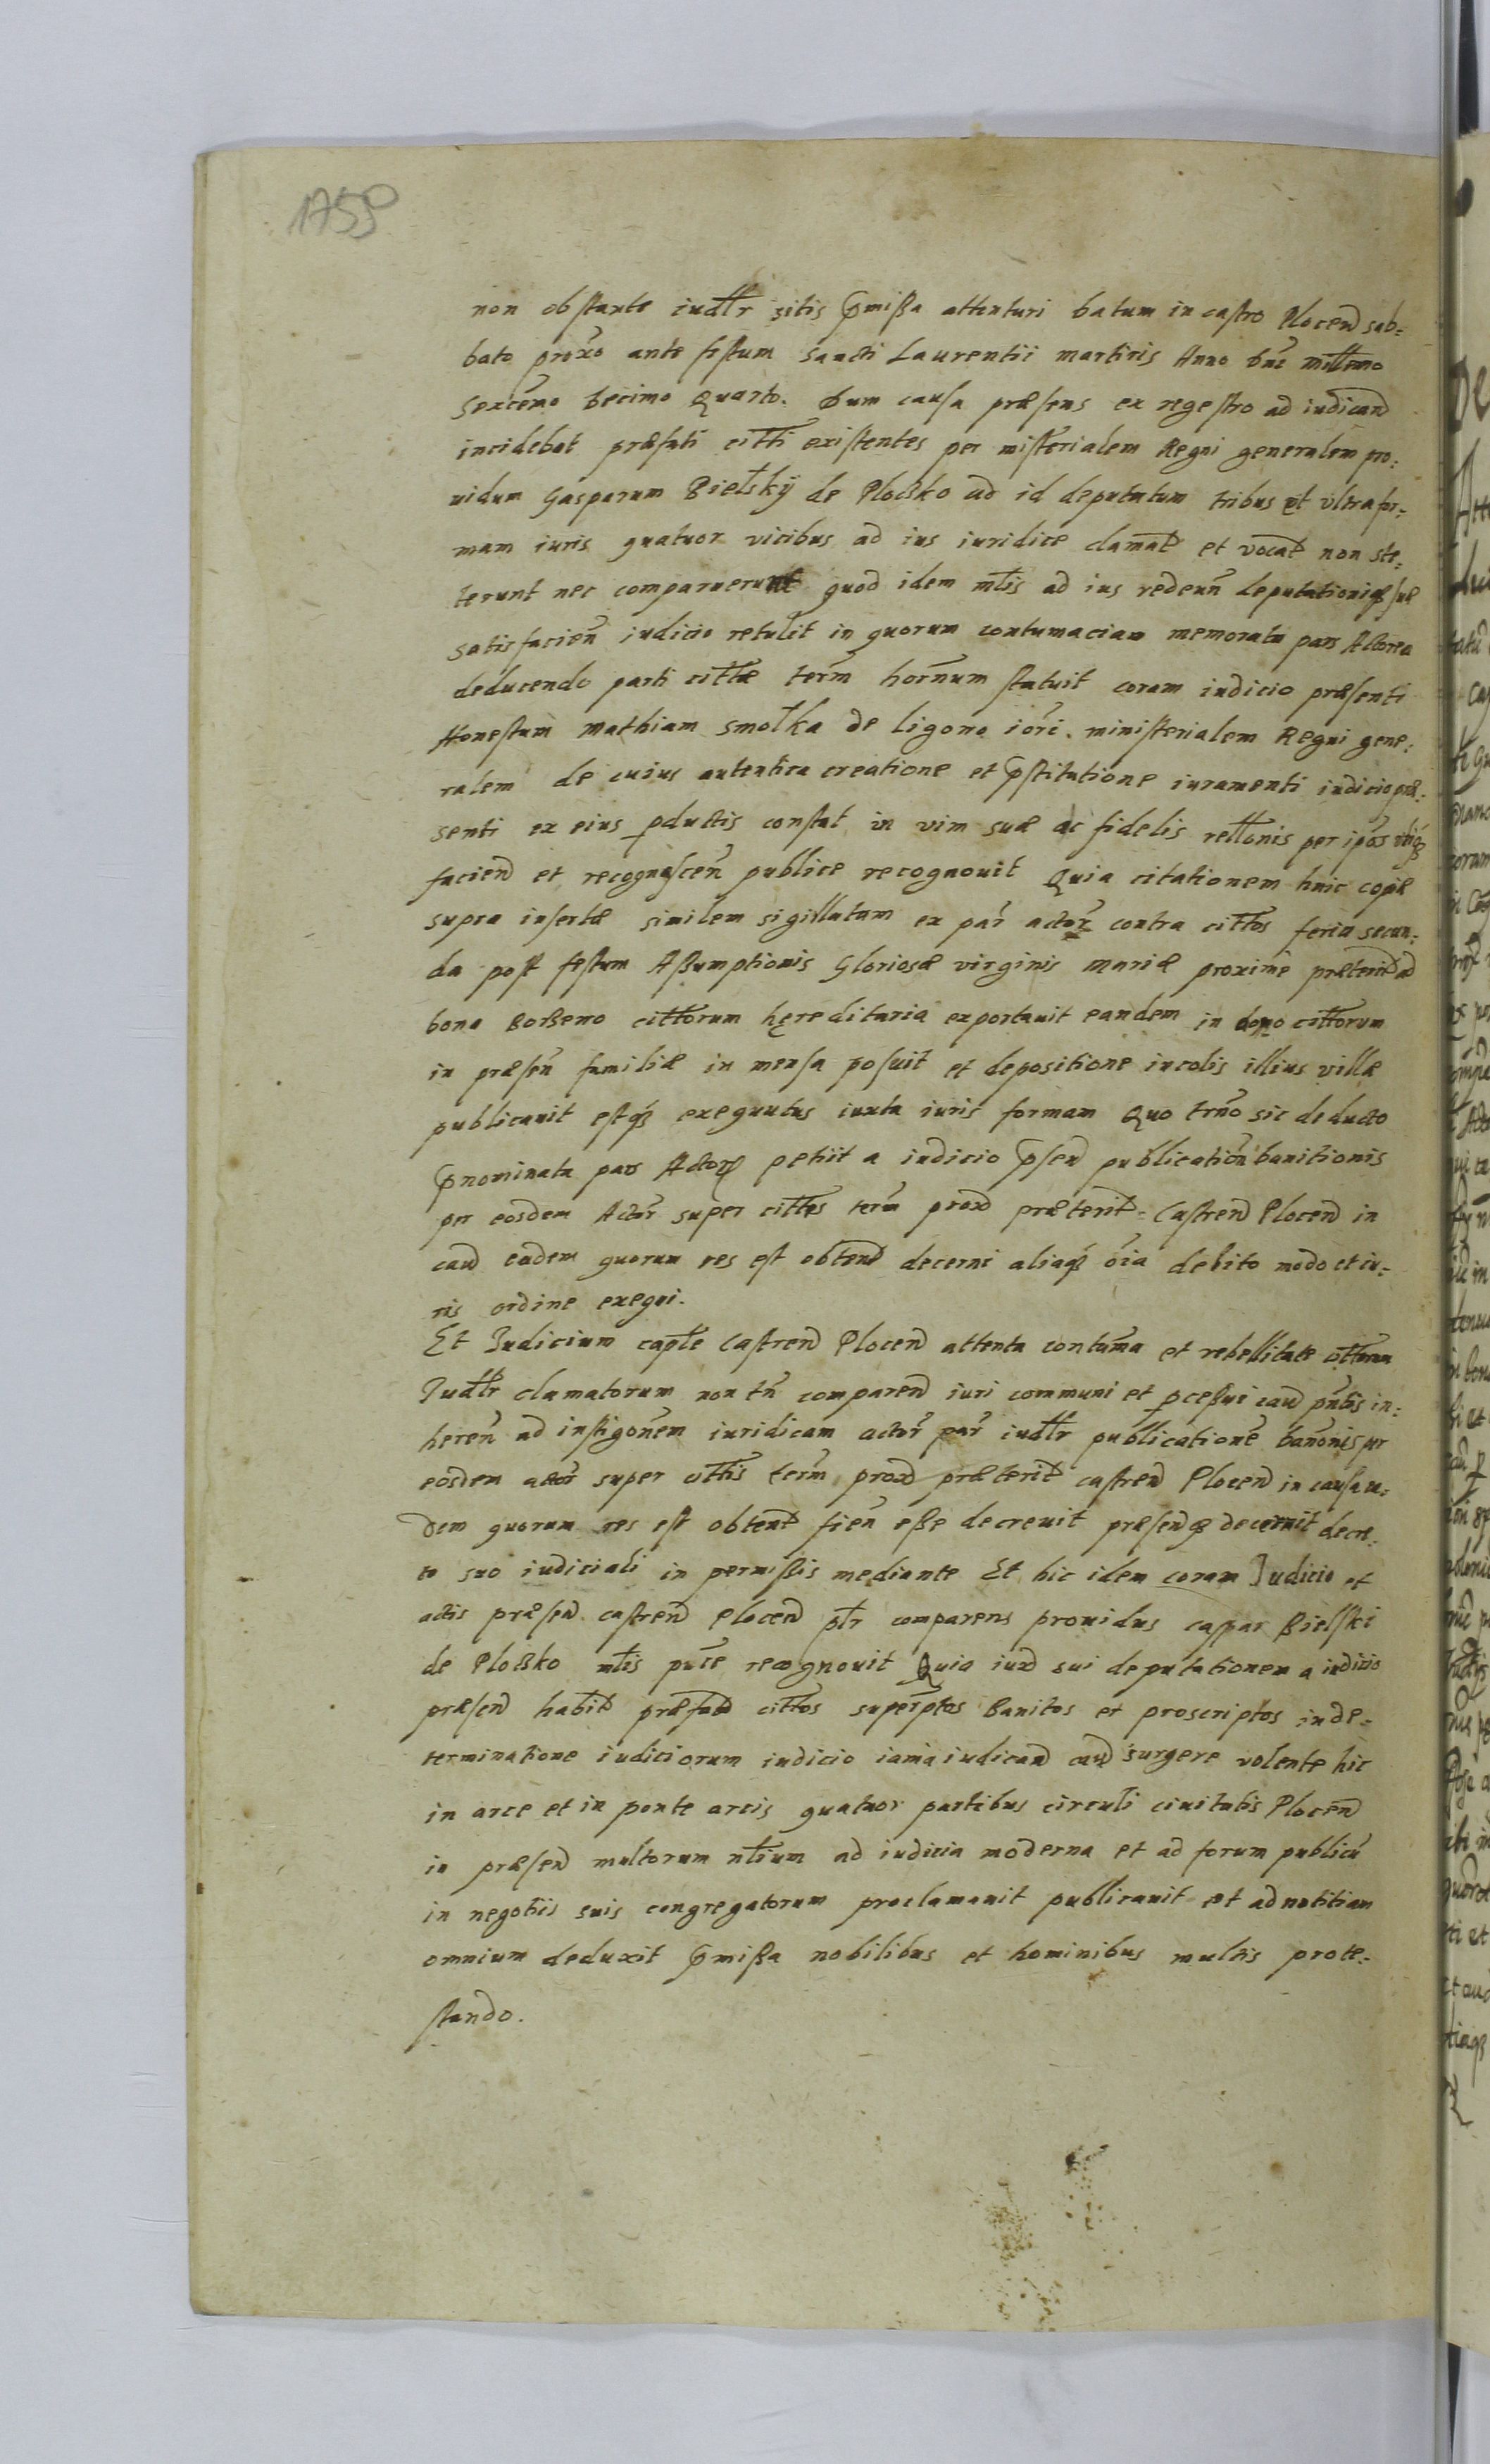 1755
non obstante iudltr sitis pmissa attenturi Datum in castro Plocen sab=
bato proxo ante festum Sancti Laurentii martiris Anno Dni millemo
Sexcemo Decimo Quarto. Dum causa præsens ex regestro ad iudicand
incidebat præfati citti existentes per misterialem Regni generalem pro=
uidum Gasparum Bielskij de Plocsko ad id deputatum tribus et vltra for=
mam iuris quatuor vicibus ad ius iuridice clamat et vocat non ste=
terunt nec comparuerunt quod idem mtlis ad ius redeun deputationiq suæ
satisfacien iudicio retulit in quorum contumaciam memorata pars Actorea
deducendo parti cittæ term hornum statuit coram iudicio præsenti
Honestum Mathiam Smolka de Ligowo iori. ministerialem Regni gene=
ralem de cuius autentica creatione et pstitutione iuramenti iudicio præ=
senti ex eius pductis constat in vim suæ ac fidelis rettonis per ipos
faciend et recognoscen publice recognouit Quia citationem huic copiæ
supra insertæ similem sigillatam ex par actor contra cittos feria secun=
da post festum Assumptionis Gloriosæ virginis Mariæ proxime præterit ad
bona Borszeno cittorum hęreditaria exportauit eandem in domo cittorum
in præsen familiæ in mensa posuit et depositione incolis illius villæ
publicauit estq exequutus iuxta iuris formam Quo trno sic deducto
pnominata pars Actor petiit a iudicio psen publication banitionis
per eosdem Actor super cittos term prox præterit Castren Plocen in
cau eadem quorum res est obtent decerni aliaq oia debito modo et iu=
ris ordine exequi.
Et Iudicium captle Castren Plocen attenta contuma et rebellitate cittorum
Iudltr clamatorum non tn comparen iuri communi et pcessui cau pntis in=
heren ad instigonem iuridicam actor par iudltr publicatione banonis per
eosdem actor super cittis term prox præterit castren Plocen in causa ea=
dem quorum res est obtent fien esse decreuit præsenq decernit decre=
to suo iudiciali in permissis mediante Et hic idem coram Iudicio et
actis præsen castren Plocen ptr comparens prouidus Caspar Bielski
de Plocsko mtlis puce recognouit Quia iux sui deputationem a iudicio
præsen habit præfat cittos superptos Banitos et proscriptos in de=
terminatione iudiciorum iudicio iamia iudicand cau surgere volente hic
in arce et in ponte arcis quatuor partibus circuli ciuitatis Plocen
in præsen multorum ntlium ad iudicia moderna et ad forum publicu
in negotiis suis congregatorum proclamauit publicauit et ad notitiam
omnium deduxit pmissa nobilibus et hominibus multis prote=
stando.